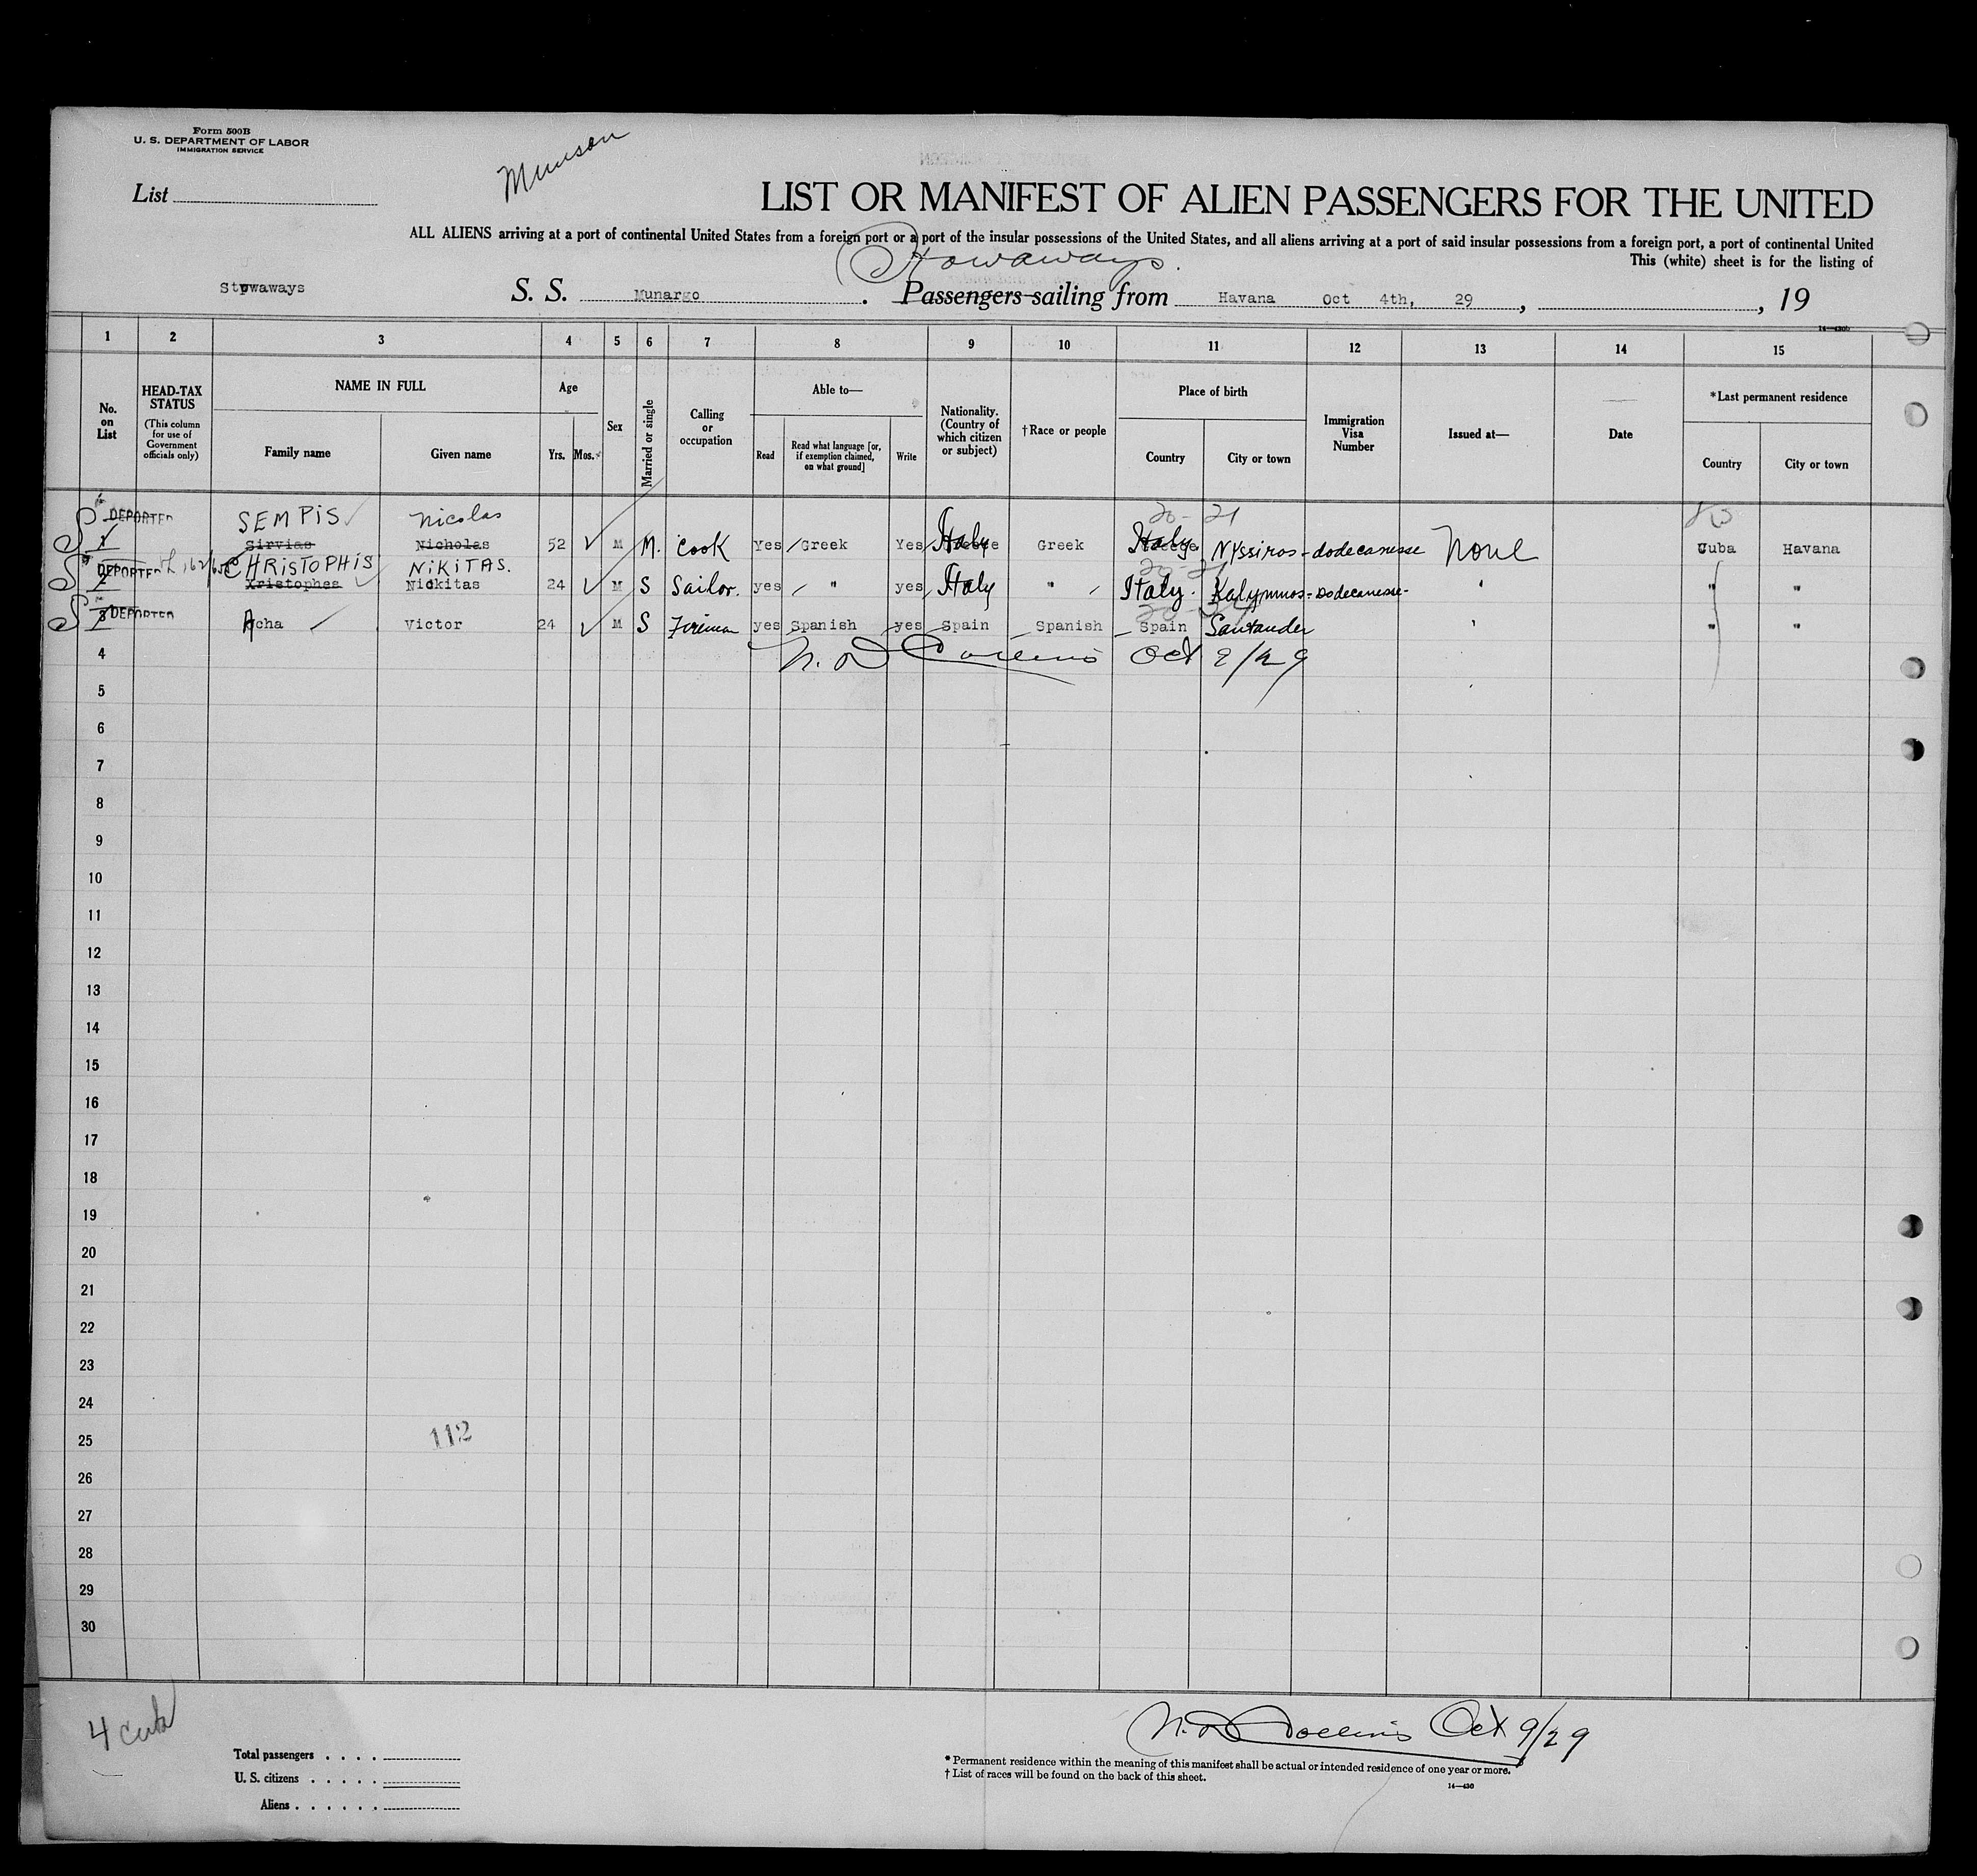 Form 500B
U. S. DEPARTMENT OF LABOR
IMMIGRATION SERVICE
Munson
List
LIST OR MANIFEST OF ALIEN PASSENGERS FOR THE UNITED
ALL ALIENS arriving at a port of continental United States from a foreign port or a port of the insular possessions of the United States, and all aliens arriving at a port of said insular possessions from a foreign port, a port of continental United
Stowaways.
This (white) sheet is for the listing of
Stowaways S. S. Munargo. Passengers sailing from Havana Oct 4th, 29, , 19
14—430b
1 2 3 4 5 6 7 8 9 10 11 12 13 14 15
No. on List
HEAD-TAX STATUS
(This column for use of Government officials only)
NAME IN FULL
Family name
Given name
Age
Yrs.
Mos.
Sex
Married or single
Calling or occupation
Able to—
Read
Read what language [or, if exemption claimed, on what ground]
Write
Nationality. (Country of which citizen or subject)
†Race or people
Place of birth
Country
City or town
Immigration Visa Number
Issued at—
Date
*Last permanent residence
Country
City or town
DEPORTED SEMPIS Nicolas 20- 21
1 Sirvias Nicholas 52 M M. Cook Yes Greek Yes Italy Greek Italy Nyssiros-dodecanesse None Cuba Havana
DEPORTED CHRISTOPHIS NIKITAS. 20-21
2 Xristophes Nickitas 24 M S Sailor. yes " yes Italy " Italy. Kalymnos-Dodecanesse- " "
DEPORTED
3 Acha Victor 24 M S Fireman yes Spanish yes Spain Spanish Spain Santander " "
4 Oct 9/29
5
6
7
8
9
10
11
12
13
14
15
16
17
18
19
20
21
22
23
24
25
112
26
27
28
29
30
4
Oct 9/29
Total passengers . . . .
U. S. citizens . . . . .
Aliens . . . . . .
* Permanent residence within the meaning of this manifest shall be actual or intended residence of one year or more.
† List of races will be found on the back of this sheet.
14—430